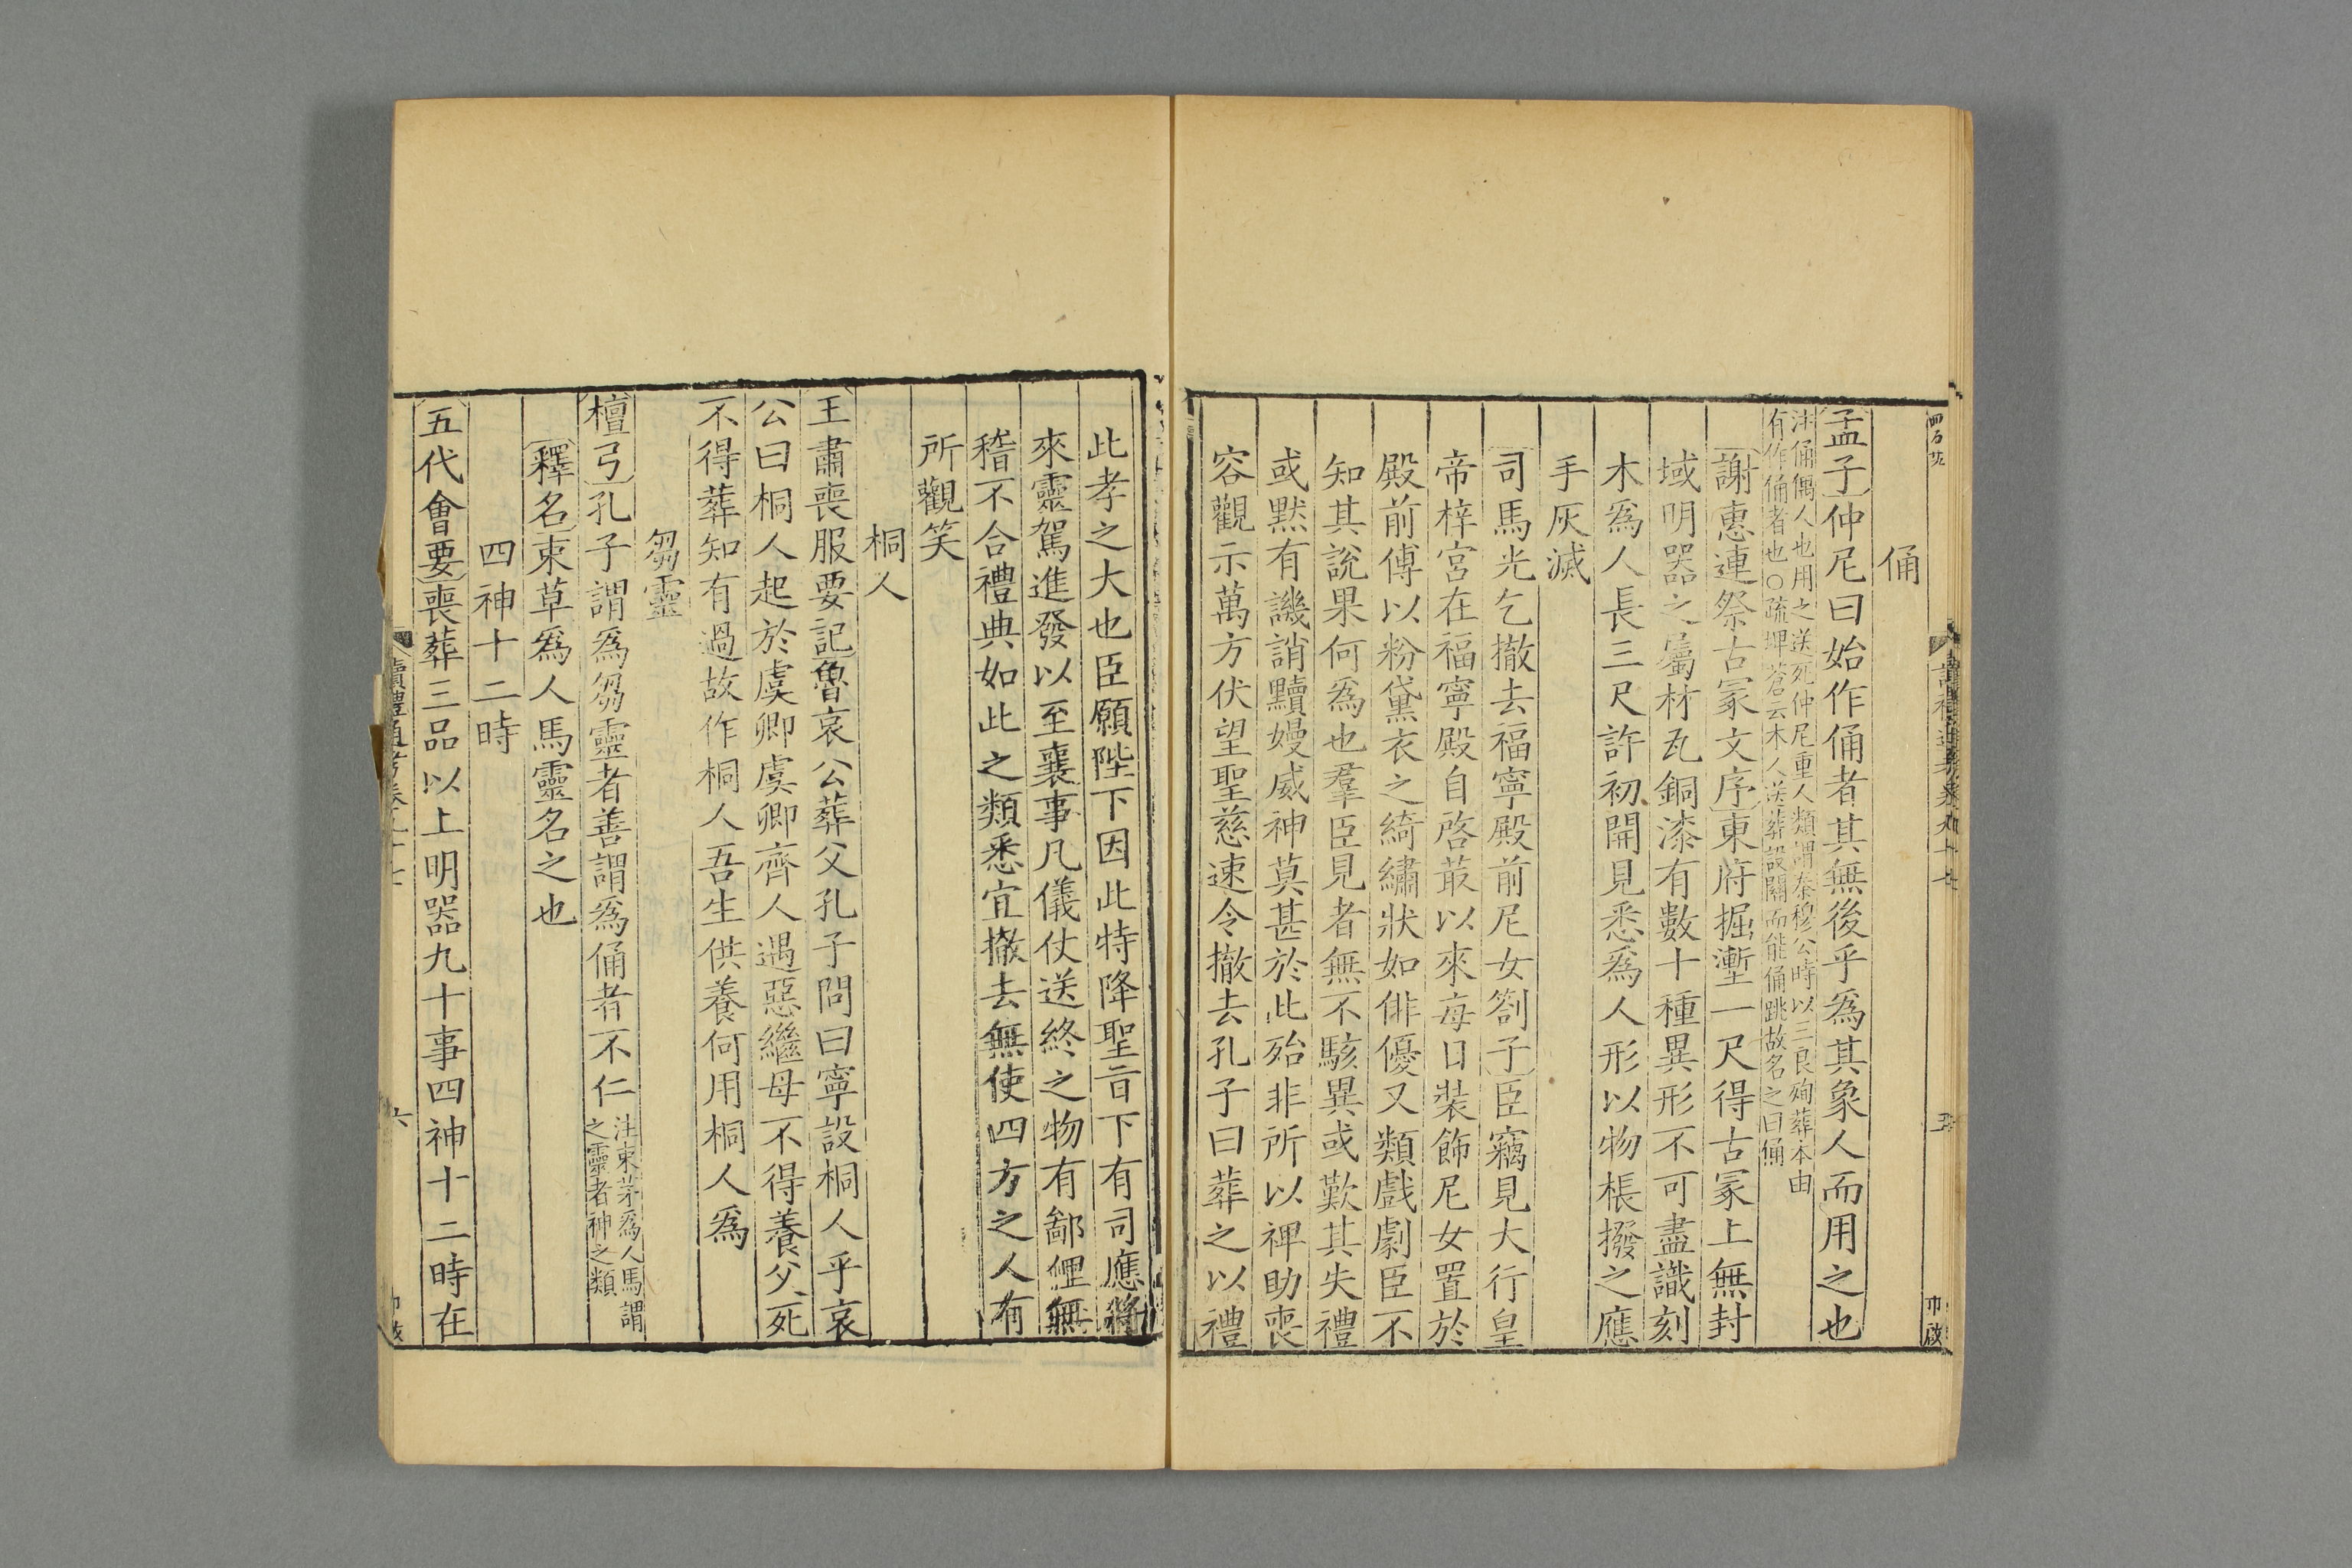 俑
孟子仲尼曰始作俑者其無後乎爲其象人而用之也
注俑偶人也用之送死仲尼重人類謂秦穆公時以三良殉葬本由
有作俑者也○疏埤蒼云木人送葬設關而能俑跳故名之曰俑
謝惠連祭古冢文序東府掘壍一尺得古冢上無封
域明器之屬材瓦銅漆有數十種異形不可盡識刻
木爲人長三尺許初開見悉爲人形以物棖撥之應
手灰滅
司馬光乞撤去福寧殿前尼女劄子臣竊見大行皇
帝梓宮在福寧殿自啓菆以來每日裝飾尼女置於
殿前傅以粉黛衣之綺繡狀如俳優又類戲劇臣不
知其說果何爲也羣臣見者無不駭異或歎其失禮
或黙有譏誚黷嫚威神莫甚於此殆非所以裨助喪
容觀示萬方伏望聖慈速令撤去孔子曰葬之以禮
此孝之大也臣願陛下因此特降聖㫖下有司應將
來靈駕進發以至襄事凡儀仗送終之物有鄙俚無
稽不合禮典如此之類悉宜撤去無使四方之人有
所觀笑
桐人
王肅喪服要記魯哀公葬父孔子問曰寧設桐人乎哀
公曰桐人起於虞卿虞卿齊人遇惡繼母不得養父死
不得葬知有過故作桐人吾生供養何用桐人爲
芻靈
檀弓孔子謂爲芻靈者善謂爲俑者不仁
注束茅爲人馬謂
之靈者神之類
釋名束草爲人馬靈名之也
四神十二時
五代會要喪葬三品以上明器九十事四神十二時在
讀禮通考卷九十七
六